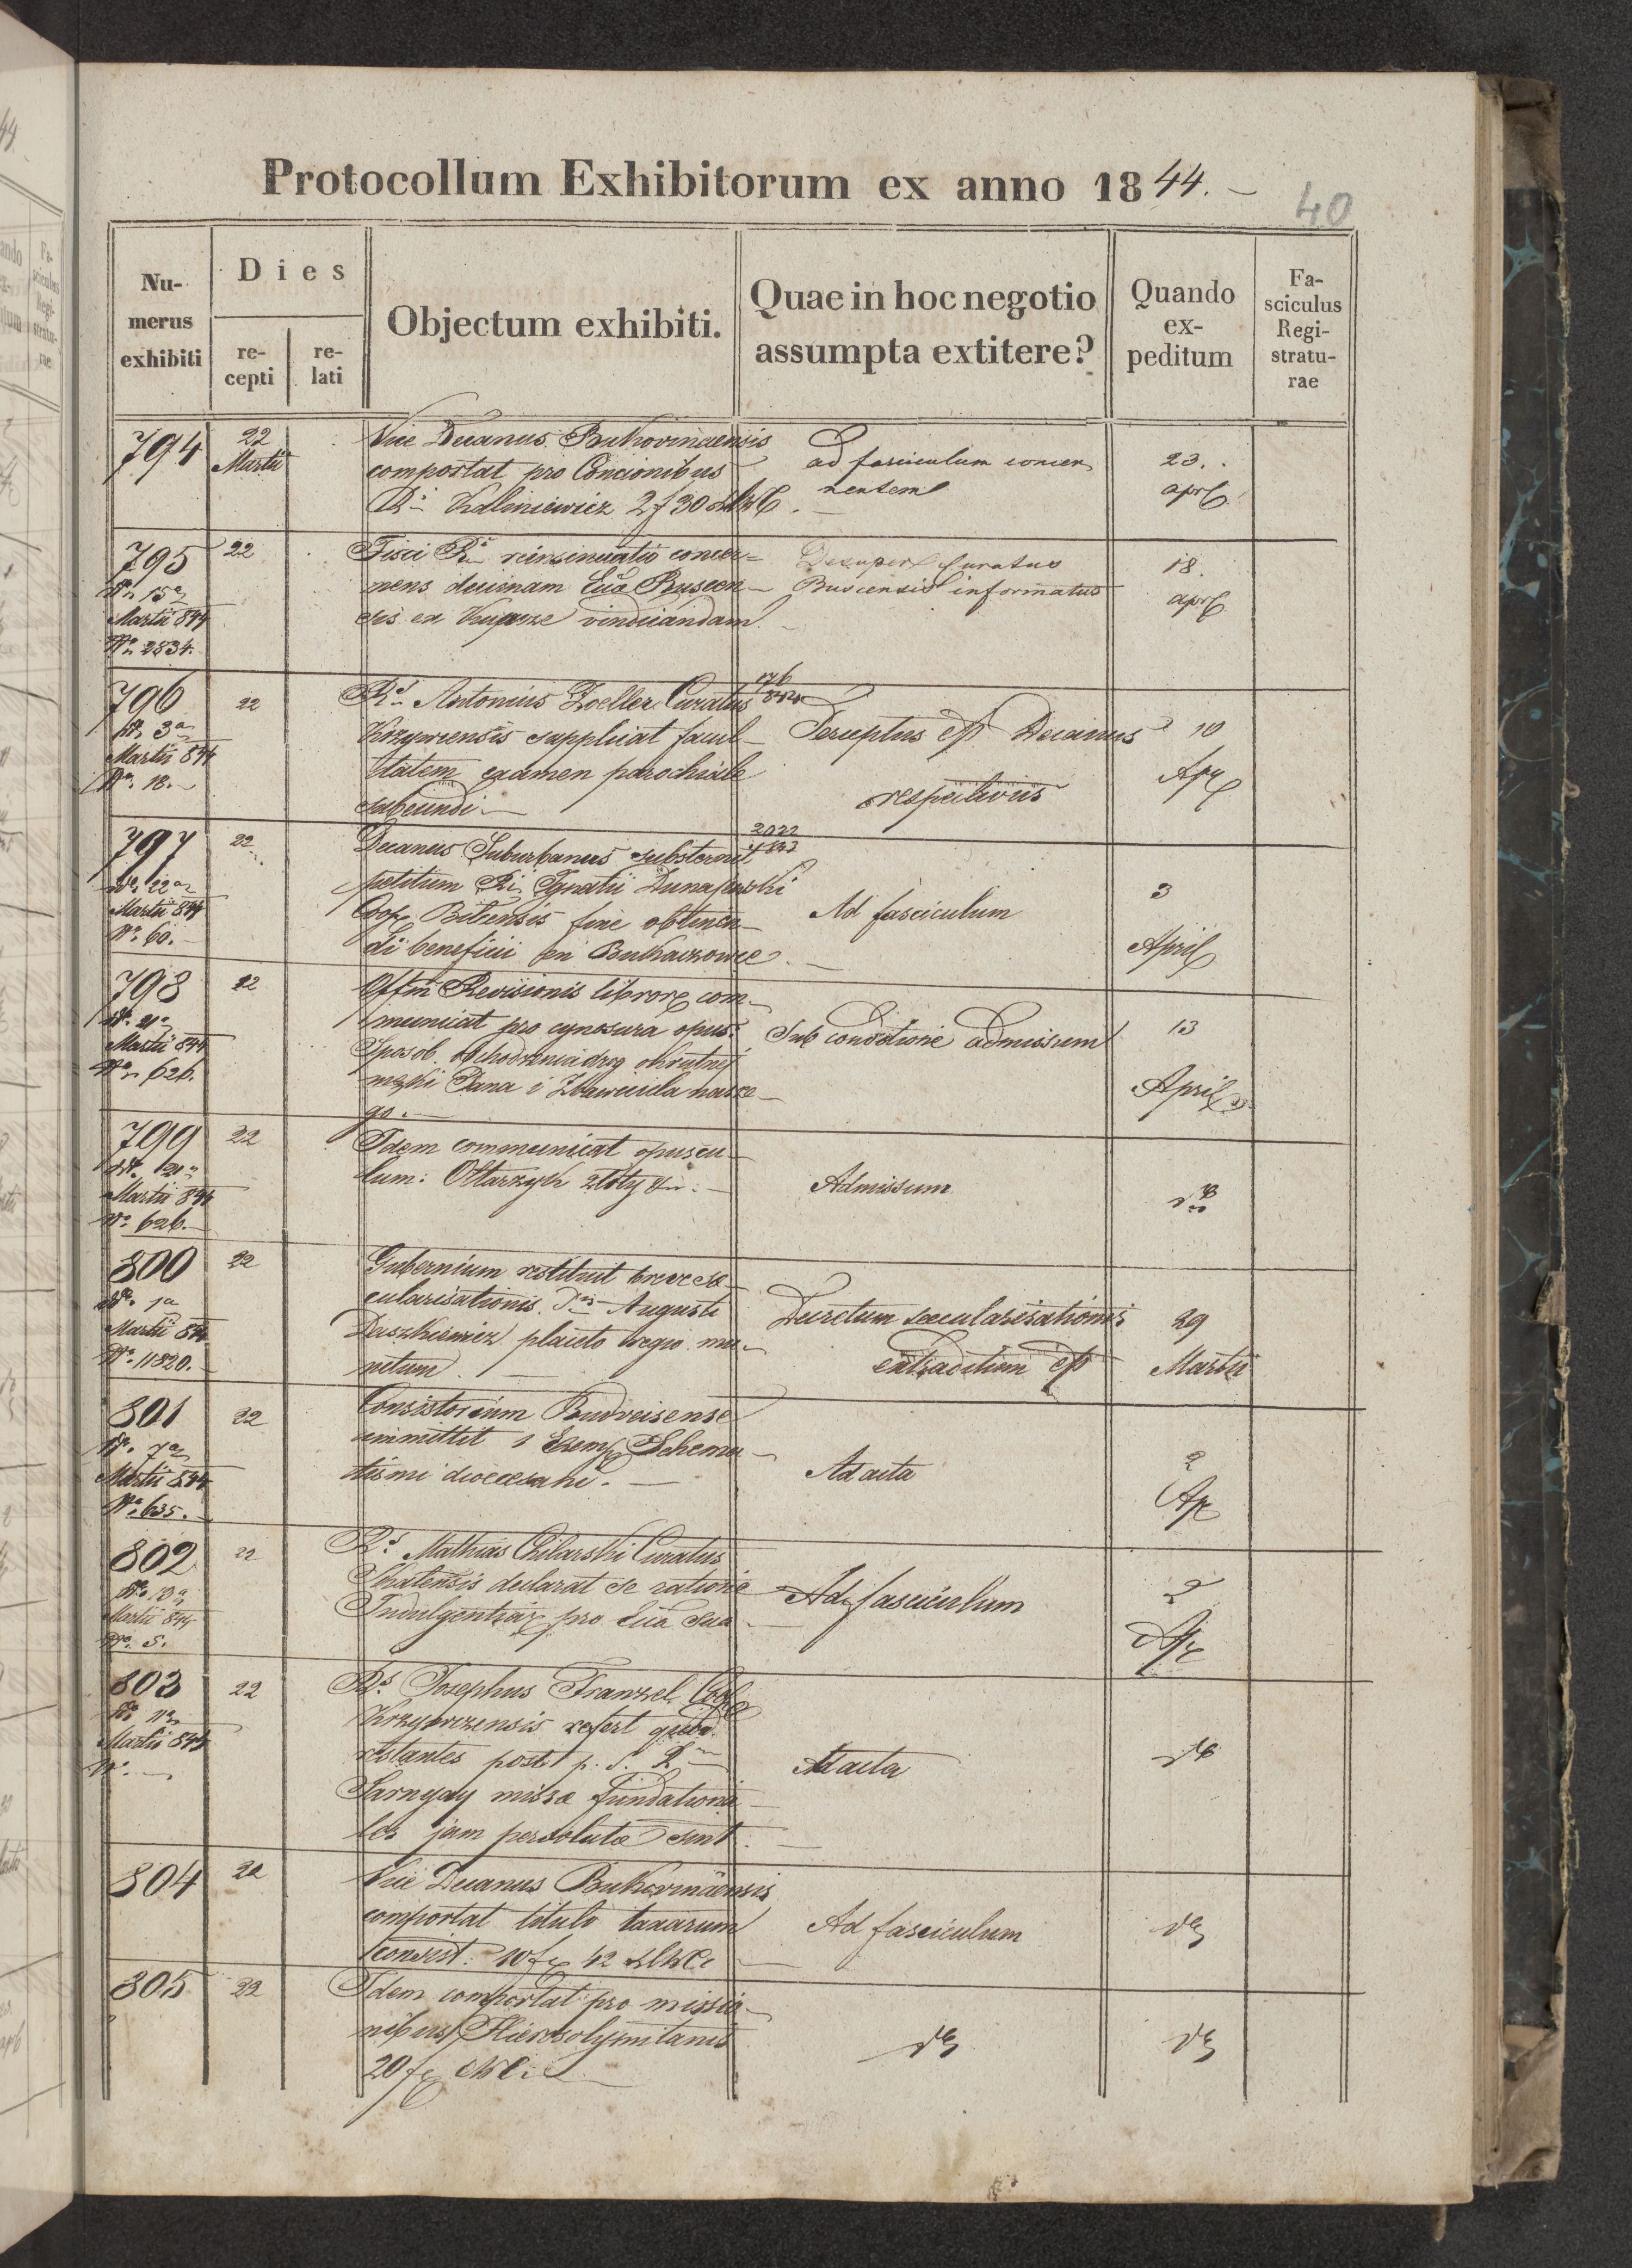 Protocollum Exhibitorum ex anno 1844.
40
Numerus exhibiti
Dies
recepti
relati
Objectum exhibiti.
Quae in hoc negotio assumpta extitere?
Quando expeditum
Fasciculus Registraturae
794
22 Martii
Vice Decanus Bukovinaensis
comportat pro Concionibus
Ri Kaliniewicz 2 f 30
ad fasciculum concer
nentem
23.
apr
795
22
do 15a
Martii 844
No 2834.
Fisci Ri reinsinuatio concer=
nens decimam Ecca Buscen-
sis ex Kupcze vindicandam
Desuper Curatus
Buscensis informatus
18.
apr
796
22
do 3a
Martii 844
No. 18.
Rd Antonius Zoeller Curatus
Krzywcensis supplicat facul-
tatem examen parochiale
subeundi
176
842
Scriptus est Decanus
respectivus
10
Apr
797
22
do 22a
Martii 844
No. 60.
Decanus Suburbanus substernit
petitum Ri Ignatii Dunajewski
Coop Bilcensis fine obtinen-
di beneficii in Bukaczowce
2022
843
Ad fasciculum
3
April
798
22
do 21a
Martii 844
No 626.
Offm Revisionis libror com-
municat pro cynosura opus:
Sposób obchodzenia drog okrutnej
męki Pana i Zbawiciela nasze-
go.
Sub conditione admissum
13
April
799
22
do 21a
Martii 844
No. 626.
Idem communicat opuscu-
lum: Ołtarzyk złoty
Admissum
800
22
do. 1a
Martii 844
No. 11820.
Gubernium restituit breve sae-
cularisationis Augusti
Daszkiewicz placeto regio mu-
nitum
Decretum saecularisationis
extraditum est
29
Martii
801
22
do. 7a
Martii 844
No. 635.
Consistorium Budveisense
immittit 1 Exemp Schema-
tismi dioecesani.
Ad acta
2
Ap
802
22
do. 10a
Martii 844
No. 5.
Rd. Mathias Chilarski Curatus
Skalensis declarat se ratione
Indulgentiar pro Ecca sua
Ad fasciculum
2
Ap
803
22
do 11a
Martii 844
No.
Rd. Josephus Franzel Coop
Krzywczensis refert quod
restantes post
missa fundationa-
les jam persoluta sint.
Ad acta
804
22
Vice Decanus Bukovinaensis
comportat titulo taxarum
consist. 10 f 42
Ad fasciculum
805
22
Idem comportat pro missio-
nibus Hierosolymitanis
20 f